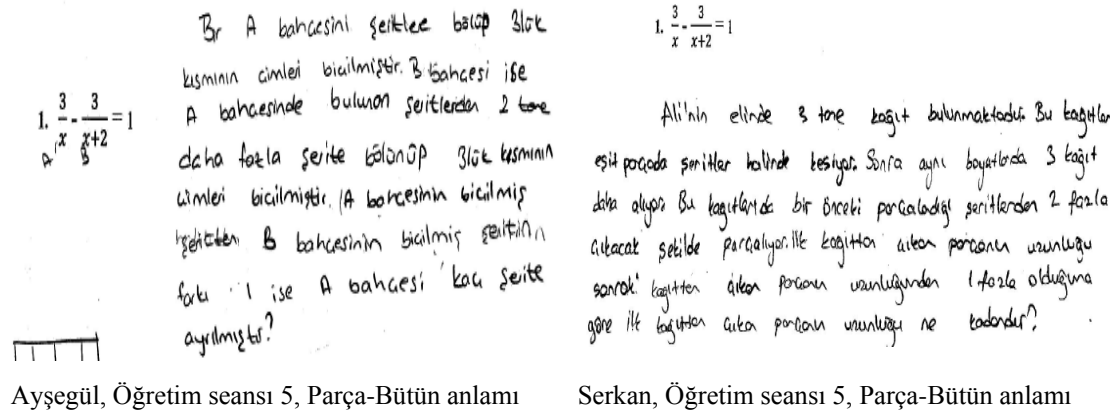 Br A bahçesini şeritlee bölüp 3lük
kısmının cimleri biçilmiştir. B bahçesi ise
A bahçesinde bulunan şeritlerden 2 tane
daha fazla şerite bölünüp 3lük kısmının
cimleri biçilmiştir. A bahçesinin biçilmiş
şeritten B bahçesinin biçilmiş şeritinin
farkı 1 ise A bahçesi kaç şerite
ayrılmıştır?
1. 3/x - 3/(x+2) = 1
A B
1. 3/x - 3/(x+2) = 1
Ali'nin elinde 3 tane kağıt bulunmaktadır. Bu kağıtları
eşit parçada şeritler halinde kesiyor. Sonra aynı boyutlarda 3 kağıt
daha alıyor. Bu kağıtlarıda bir önceki parçaladığı şeritlerden 2 fazla
çıkacak şekilde parçalıyor. İlk kağıttan çıkan parçanın uzunluğu
sonraki kağıttan çıkan parçanın uzunluğundan 1 fazla olduğuna
göre ilk kağıttan çıkan parçanın uzunluğu ne kadardır?
Ayşegül, Öğretim seansı 5, Parça-Bütün anlamı
Serkan, Öğretim seansı 5, Parça-Bütün anlamı